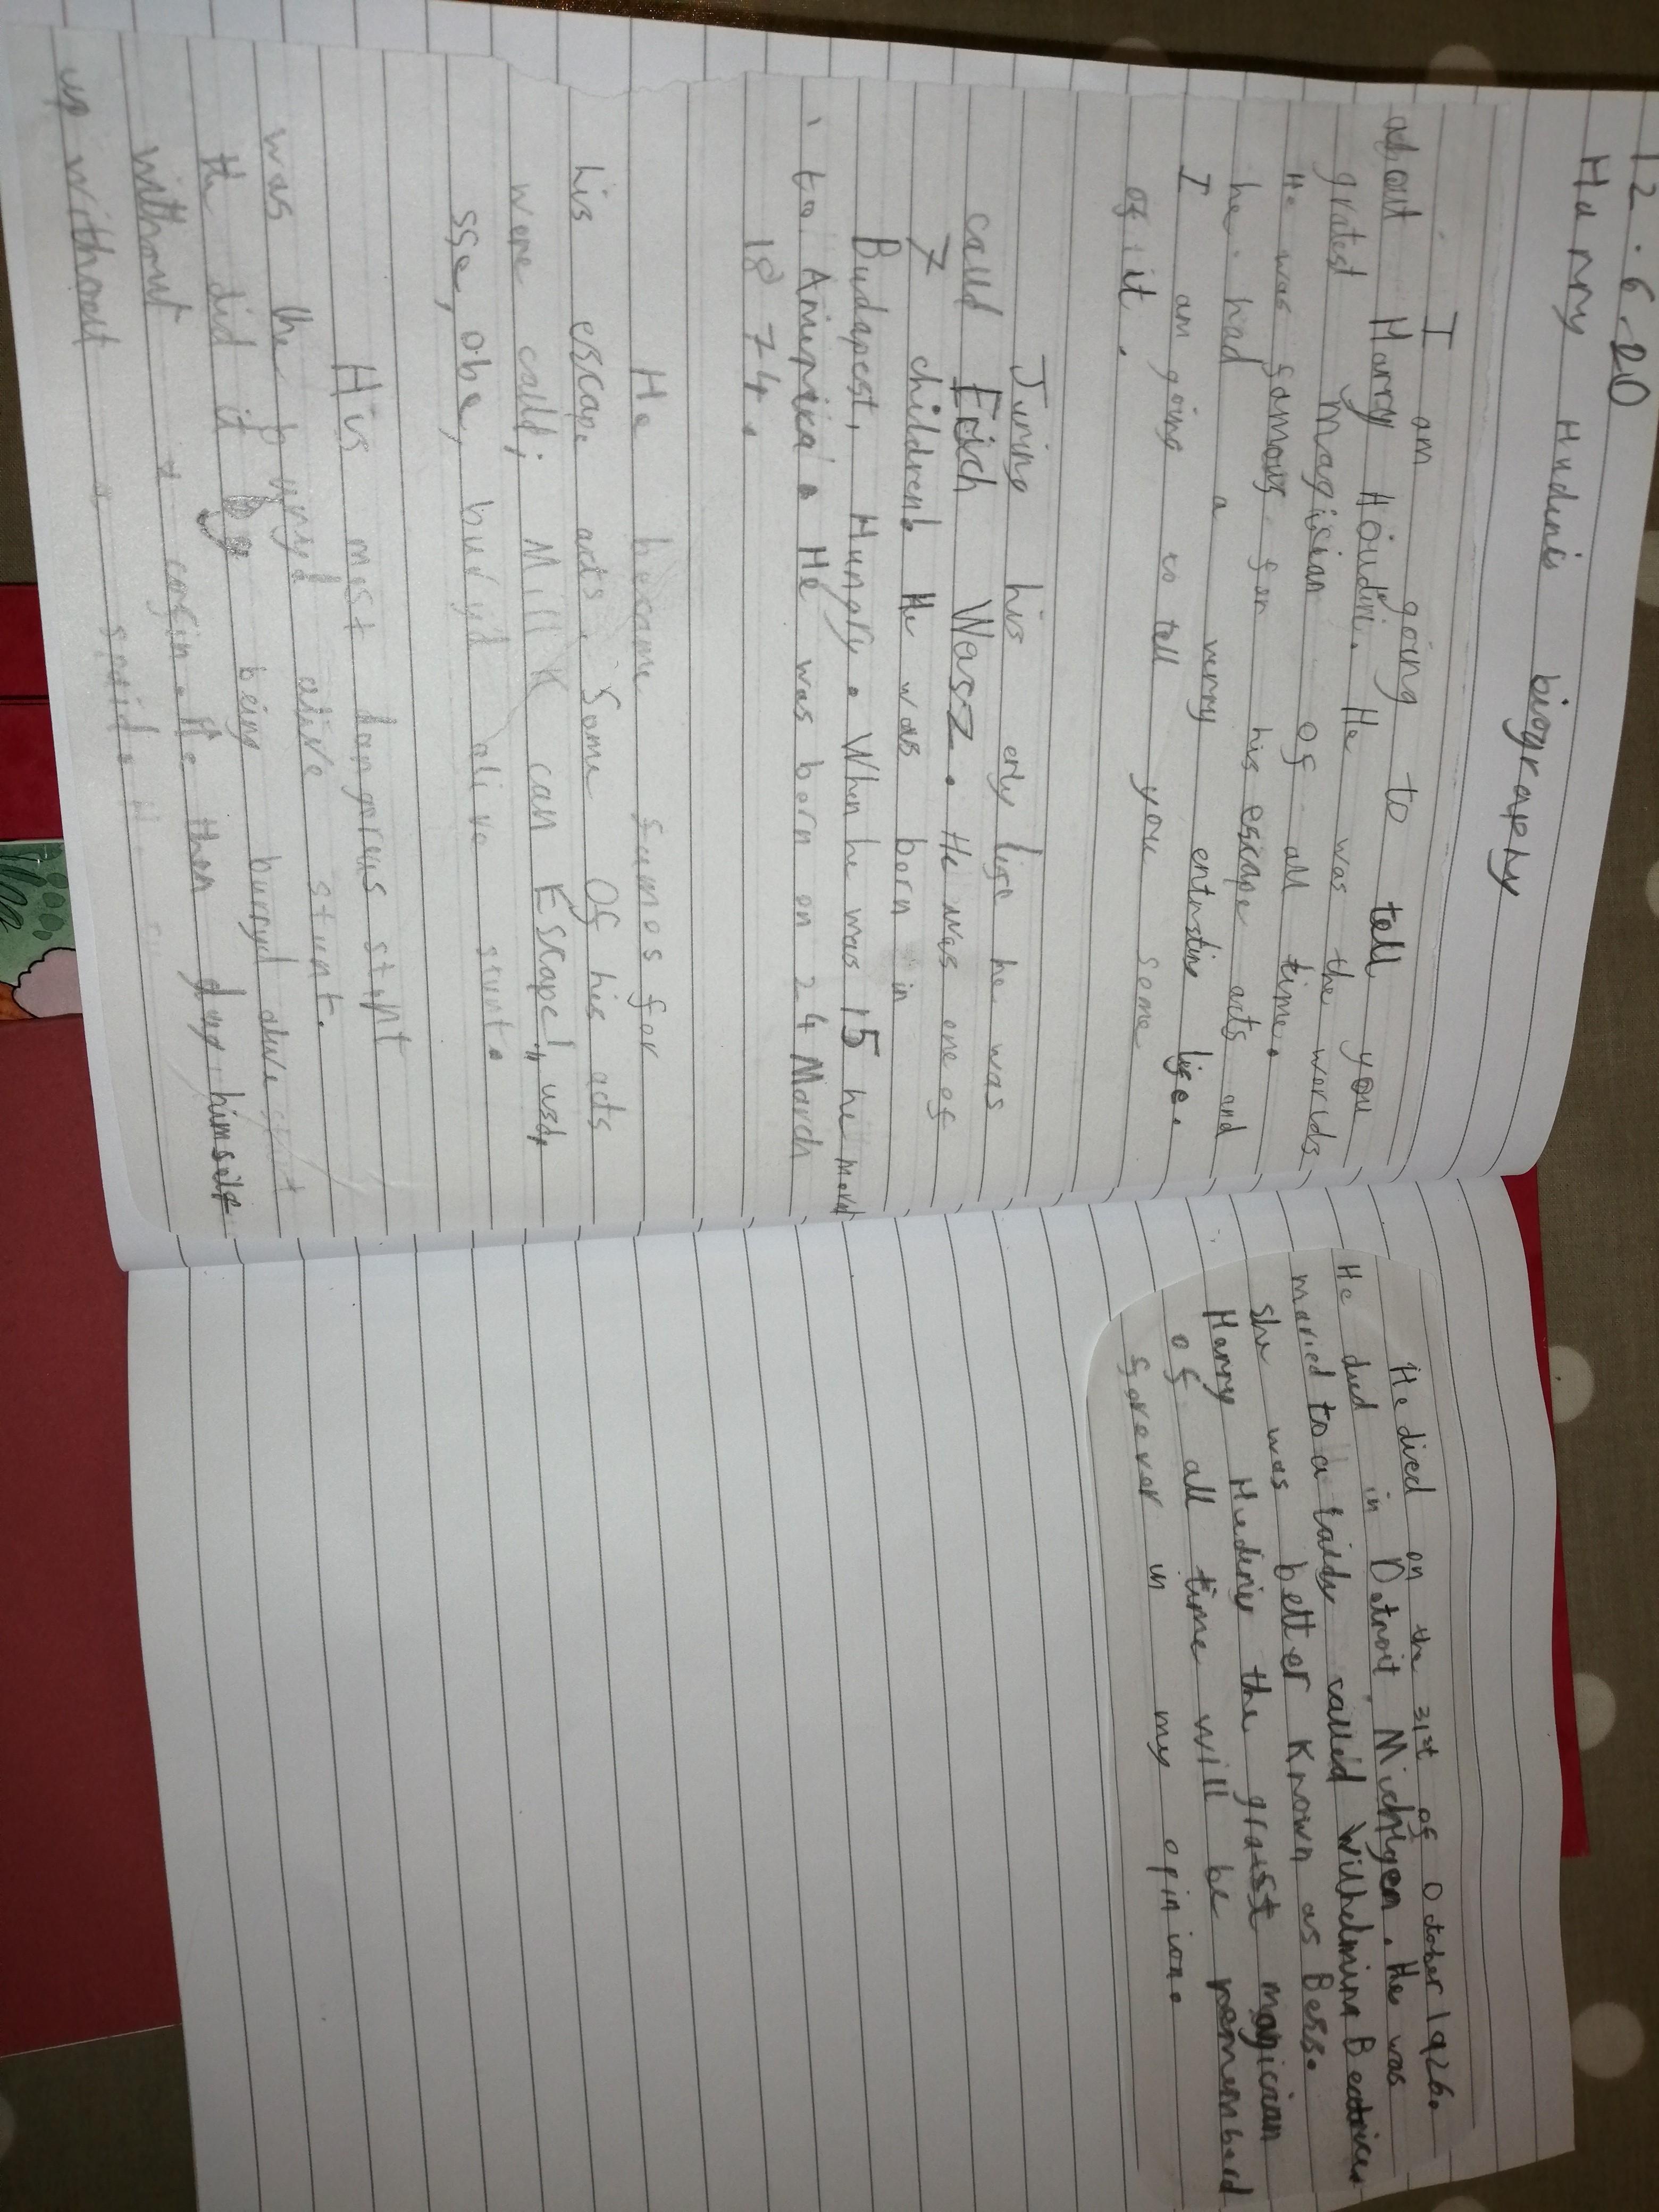 12.6.20
Harry Hudinis biography
I am going to tell you
about Harry Houdini. He was the worlds
gratest magisian of all time.
He was famous for his escape acts and
he had a verry entersting life.
I am going to tell you some
of it.
During his erly life he was
calld Erich Wasz. He was one of
7 children. He was born in
Budapest, Hungry. When he was 15 he movd
to Amerika. He was born on 24 March
1874.
He became fumos for
his escape acts. Some Of his acts
were calld; Mill K can Escape!,, usd,
sse, obe, buryd alive stunt.
His most dangerus stunt
was the buryd alive stunt.
the did it by being buryd alive stunt
without a coffin. He then dug himself
up without a
He died on the 31st of October 1926.
He died in Detroit Michigen. He was
maried to a laidy called Wilhelmina Beatrices
she was better Known as Bess.
Harry Hudiny the gratist magician
of all time will be rememberd
forever in my opinion.